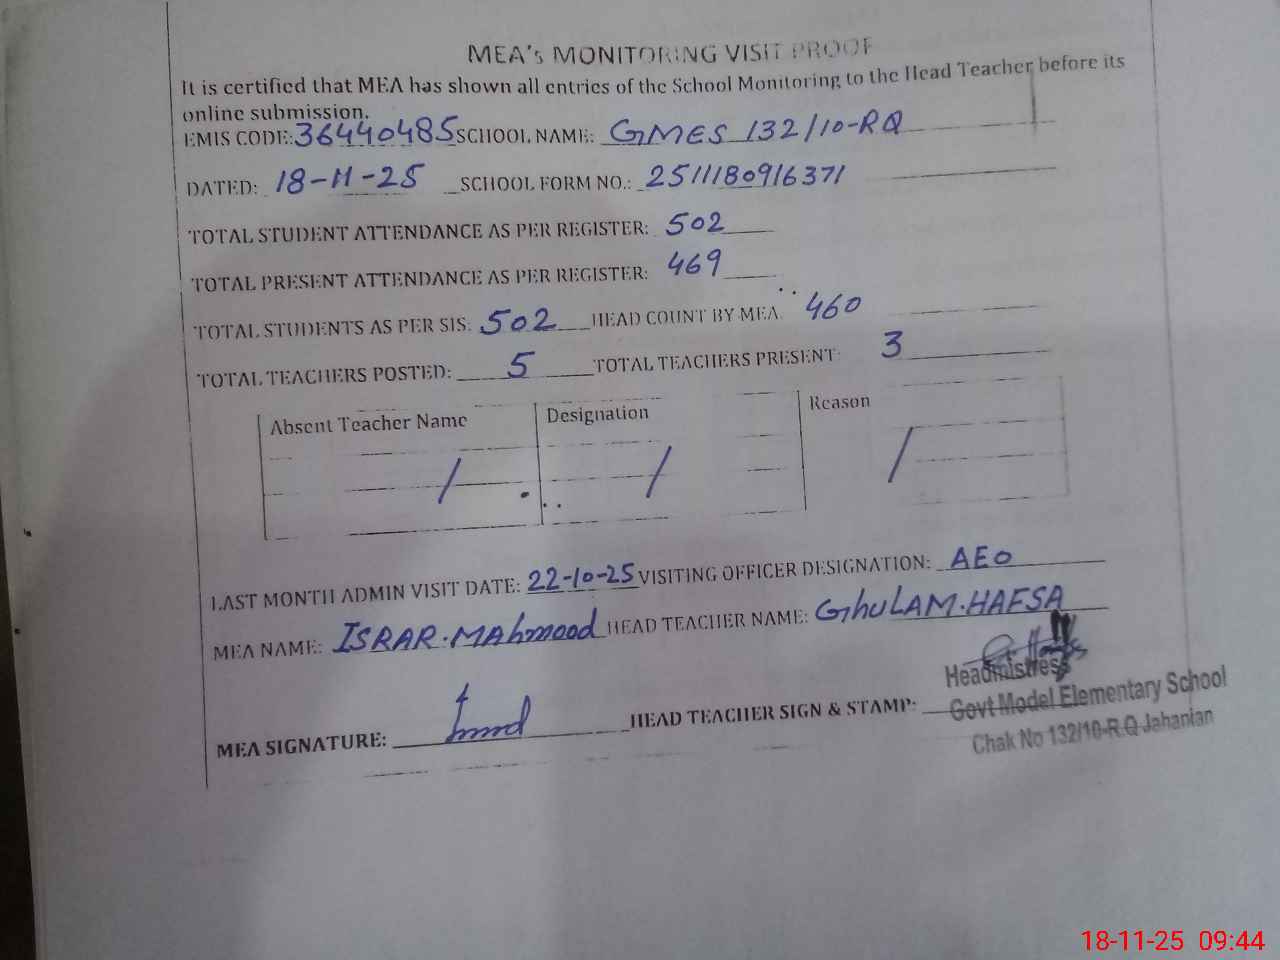 MEA's MONITORING VISIT PROOF
It is certified that MEA has shown all entries of the School Monitoring to the Head Teacher before its
online submission.
EMIS CODE: 36440485 SCHOOL NAME: GMES 132/10-RQ
DATED: 18-11-25 SCHOOL FORM NO.: 2511180916371
TOTAL STUDENT ATTENDANCE AS PER REGISTER: 502
TOTAL PRESENT ATTENDANCE AS PER REGISTER: 469
TOTAL STUDENTS AS PER SIS: 502 HEAD COUNT BY MEA: 460
TOTAL TEACHERS POSTED: 5 TOTAL TEACHERS PRESENT: 3
Absent Teacher Name Designation Reason
/ / /
LAST MONTH ADMIN VISIT DATE: 22-10-25 VISITING OFFICER DESIGNATION: AEO
MEA NAME: ISRAR.MAhmood HEAD TEACHER NAME: GhULAM.HAFSA
MEA SIGNATURE: HEAD TEACHER SIGN & STAMP:
Headmistress
Govt Model Elementary School
Chak No 132/10-R.Q Jahanian
18-11-25 09:44